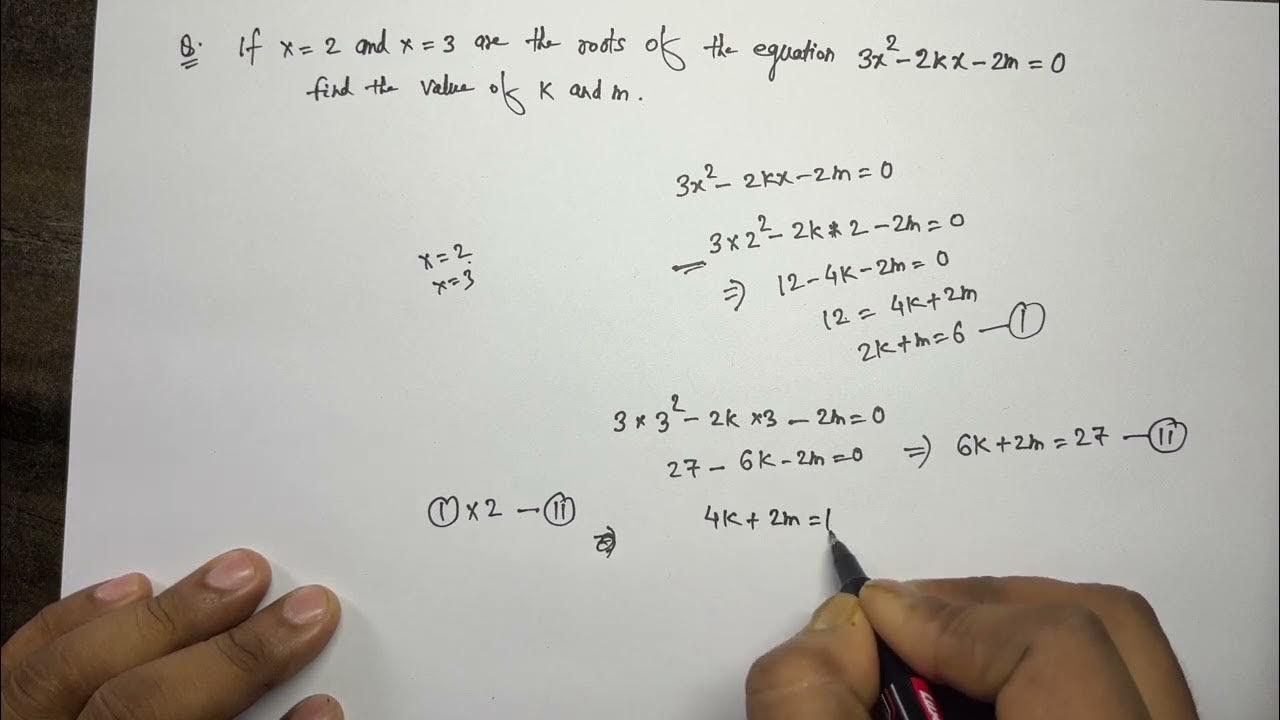 Q. If x = 2 and x = 3 are the roots of the equation 3x² - 2kx - 2m = 0
find the value of k and m.
3x² - 2kx - 2m = 0
x = 2
x = 3
3 × 2² - 2k × 2 - 2m = 0
⇒ 12 - 4k - 2m = 0
12 = 4k + 2m
2k + m = 6 — (I)
3 × 3² - 2k × 3 - 2m = 0
27 - 6k - 2m = 0 ⇒ 6k + 2m = 27 — (II)
(I) × 2 - (II)
⇒ 4k + 2m = 1